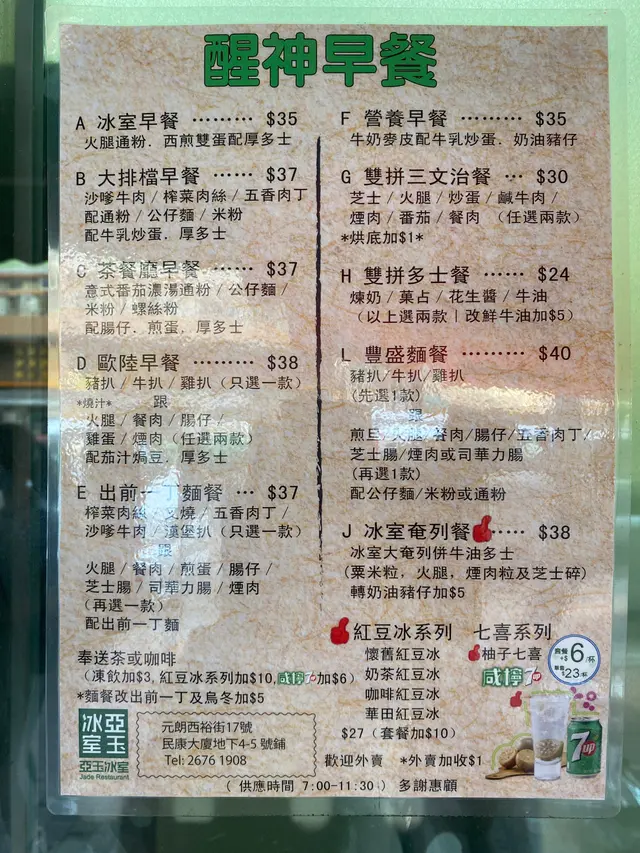 醒神早餐
A 冰室早餐 ……… $35
火腿通粉．西煎雙蛋配厚多士
B 大排檔早餐 …… $37
沙嗲牛肉/榨菜肉絲/五香肉丁
配通粉/公仔麵/米粉
配牛乳炒蛋．厚多士
C 茶餐廳早餐 …… $37
意式番茄濃湯通粉/公仔麵/
米粉/螺絲粉
配腸仔．煎蛋，厚多士
D 歐陸早餐 ……… $38
豬扒/牛扒/雞扒(只選一款)
*燒汁* 跟
火腿/餐肉/腸仔/
雞蛋/煙肉(任選兩款)
配茄汁焗豆．厚多士
E 出前一丁麵餐 … $37
榨菜肉絲/叉燒/五香肉丁/
沙嗲牛肉/漢堡扒(只選一款)
跟
火腿/餐肉/煎蛋/腸仔/
芝士腸/司華力腸/煙肉
(再選一款)
配出前一丁麵
奉送茶或咖啡
(凍飲加$3, 紅豆冰系列加$10, 咸檸7加$6)
*麵餐改出前一丁及烏冬加$5
F 營養早餐 ……… $35
牛奶麥皮配牛乳炒蛋．奶油豬仔
G 雙拼三文治餐 … $30
芝士/火腿/炒蛋/鹹牛肉/
煙肉/番茄/餐肉 (任選兩款)
*烘底加$1*
H 雙拼多士餐 …… $24
煉奶/菓占/花生醬/牛油
(以上選兩款|改鮮牛油加$5)
L 豐盛麵餐 ……… $40
豬扒/牛扒/雞扒
(先選1款)
跟
煎旦/火腿/餐肉/腸仔/五香肉丁/
芝士腸/煙肉或司華力腸
(再選1款)
配公仔麵/米粉或通粉
J 冰室奄列餐 …… $38
冰室大奄列併牛油多士
(粟米粒, 火腿, 煙肉粒及芝士碎)
轉奶油豬仔加$5
紅豆冰系列
懷舊紅豆冰
奶茶紅豆冰
咖啡紅豆冰
華田紅豆冰
$27 (套餐加$10)
七喜系列
柚子七喜
咸檸7
+$6/杯
$23/杯
7up
歡迎外賣 *外賣加收$1
亞玉冰室
亞玉冰室
Jade Restaurant
元朗西裕街17號
民康大廈地下4-5 號鋪
Tel: 2676 1908
( 供應時間 7:00-11:30 ) 多謝惠顧